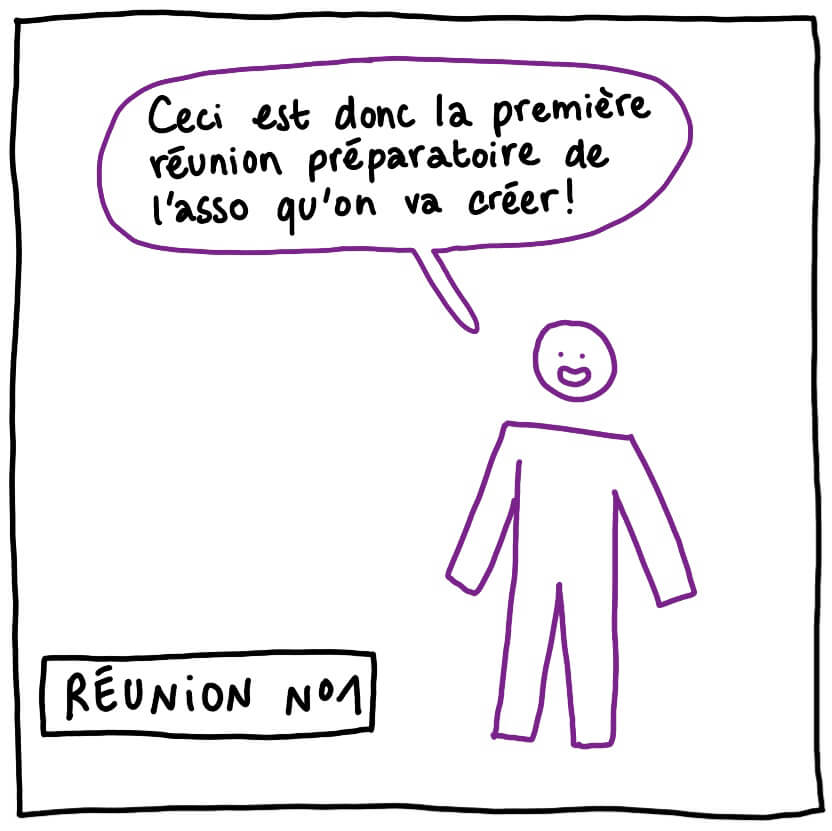 Ceci est donc la première
réunion préparatoire de
l'asso qu'on va créer!
RÉUNION Nº1